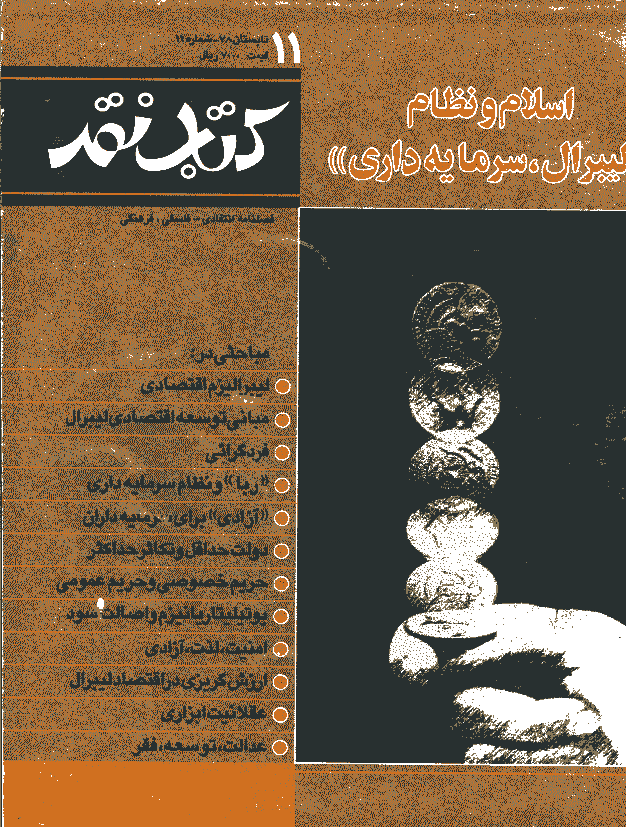 ۱۱
تابستان ۷۸ - شماره ۱۱
قیمت: ۷۰۰۰ ریال
کتاب نقد
اسلام و نظام
لیبرال، سرمایه داری»
فصلنامه انتقادی - فلسفی، فرهنگی
مباحثی در:
لیبرالیزم اقتصادی
مبانی توسعه اقتصادی لیبرال
فردگرائی
«ربا» و نظام سرمایه داری
«آزادی» برای سرمایه داران
دولت حداقل و تکاثر حداکثر
حریم خصوصی و حریم عمومی
یوتیلیتاریانیزم و اصالت سود
امنیت، آزادی
ارزش گریزی در اقتصاد لیبرال
عقلانیت ابزاری
عدالت، توسعه، فقر